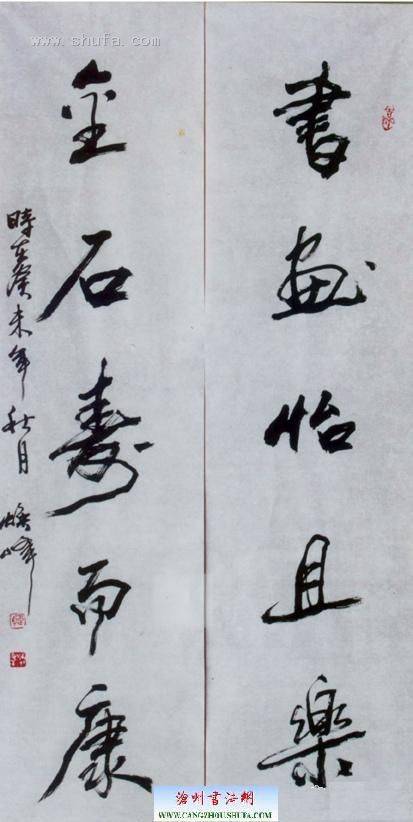 書畫怡且樂
金石壽而康
時在癸未年秋月
書法 shufa.com
滄州書法網
WWW.CANGZHOUSHUFA.COM